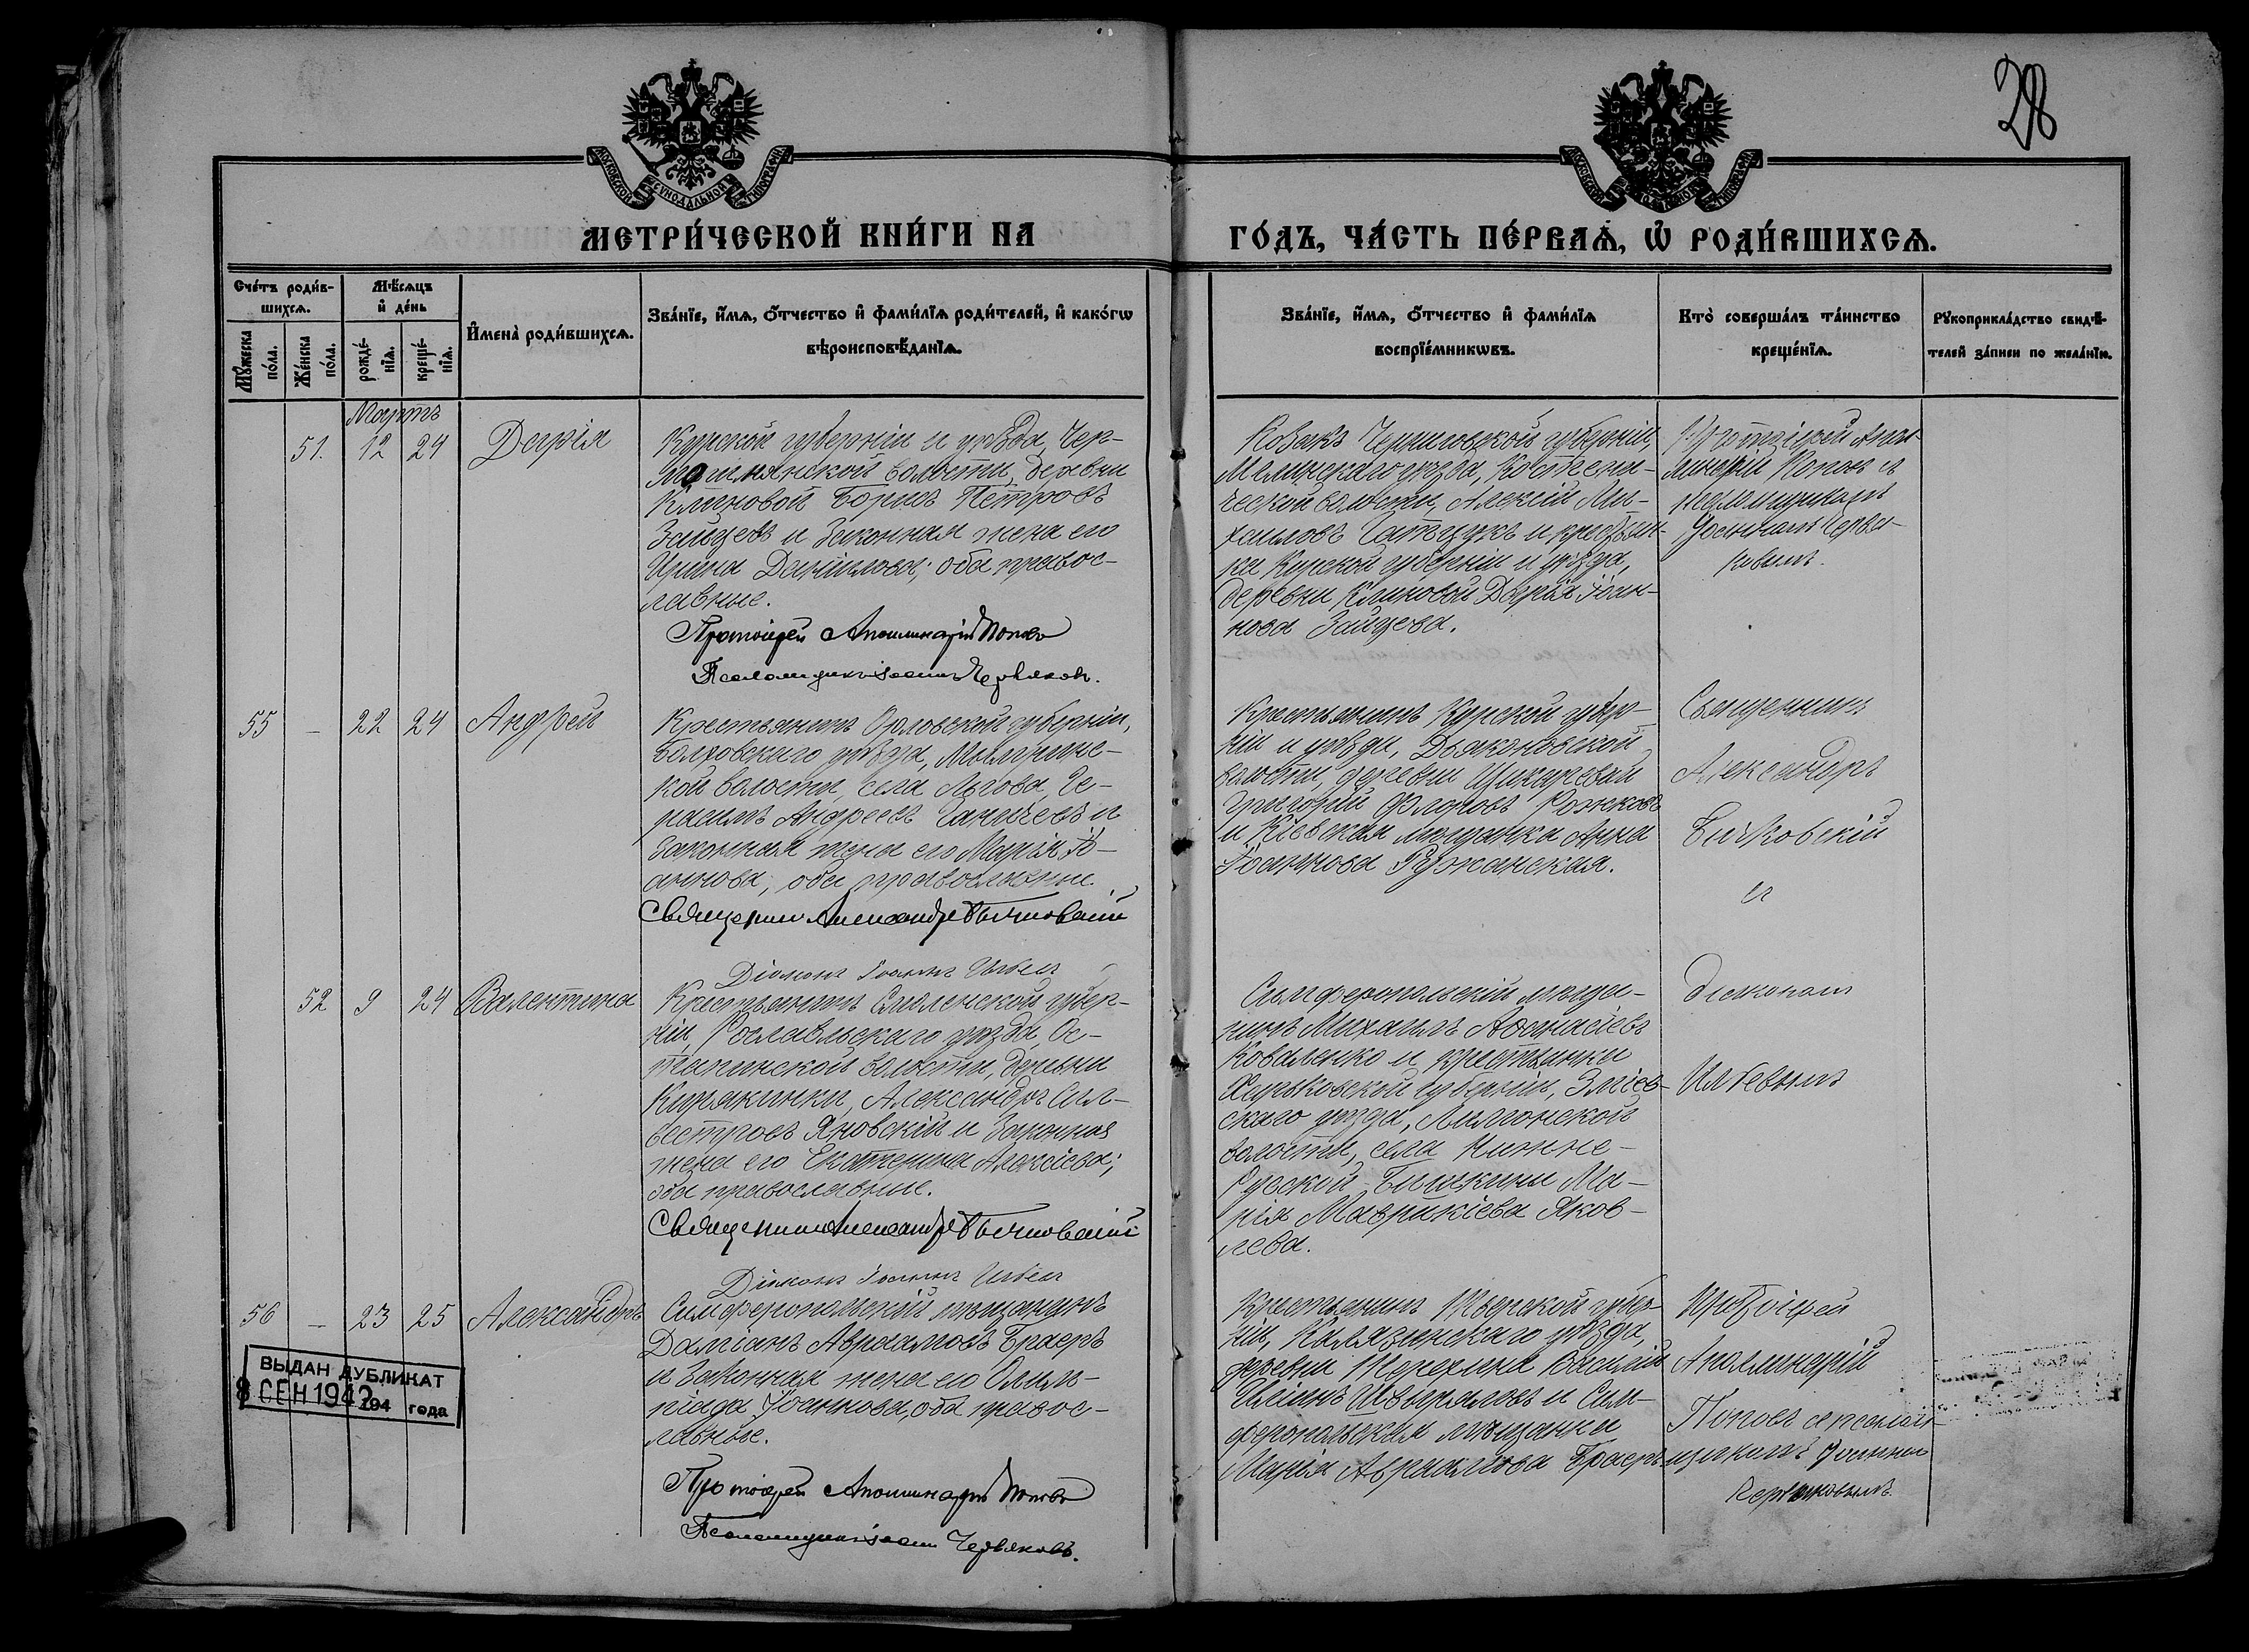 28
МОСКОВСКОЙ СѴНОДАЛЬНОЙ ТИПОГРАФІИ
МЕТРИ́ЧЕСКОЙ КНИ́ГИ НА
ГО́ДЪ, ЧА́СТЬ ПЕ́РВАѦ, Ѡ҆ РОДИ́ВШИХСѦ.
Сче́тъ роди́в-
шихсѧ.
Мѣ́сѧцъ
и҆ де́нь
Мꙋ́жеска
по́ла.
Же́нска
по́ла.
рожде́-
нїѧ.
креще́-
нїѧ.
И҆мена̀ роди́вшихсѧ.
Зва́нїе, и҆́мѧ, ѻ҆́тчество и҆ фами́лїѧ роди́телей, и҆ како́гѡ
вѣроисповѣ́данїѧ.
Зва́нїе, и҆́мѧ, ѻ҆́тчество и҆ фами́лїѧ
воспрїе́мникѡвъ.
Кто̀ соверша́лъ та́инство
креще́нїѧ.
Рꙋкоприкла́дство свидѣ́-
телей за́писи по жела́нїю.
Мартъ
51. 12 24 Дарія
Курской губерніи и уѣзда, Чер-
волости, деревни
Клиновой Борисъ Петровъ
Зайцевъ и законная жена его
Ирина Даніилова; оба правос-
лавные.
Протоіерей Аполлинарій Поповъ
Псаломщикъ Іоаннъ Червяковъ.
Козакъ Черниговской губерніи,
уѣзда,
ческой волости, Алексій Ми-
хаиловъ и крестьян-
ка Курской губерніи и уѣзда,
деревни Клиновой Дарья Іоан-
нова Зайцева.
Протоіерей Апол-
линарій Поповъ съ
псаломщикомъ
Іоанномъ Червя-
ковымъ.
55 – 22 24 Андрей
Крестьянинъ Орловской губерніи,
Болховскаго уѣзда,
кой волости, села Льгова, Ге-
расимъ Андреевъ и
законная жена его Марія Іо-
аннова; оба православные.
Священникъ Александръ Бычковскій
Діаконъ Іоаннъ
Крестьянинъ Курской губер-
ніи и уѣзда, Дьяконовской
волости, деревни
Григорій Флоровъ Рожковъ
и Кіевская мѣщанка Анна
Іоаннова Ружанская.
Священникъ
Александръ
Бычковскій
съ
52 9 24 Валентина
Крестьянинъ Смоленской губер-
ніи, Рославльскаго уѣзда, Ос-
волости, деревни
Александръ Сил-
вестровъ Яновскій и законная
жена его Екатерина Алексіева;
оба православные.
Священникъ Александръ Бычковскій
Діаконъ Іоаннъ
Симферопольскій мѣща-
нинъ Михаилъ Аѳанасіевъ
Коваленко и крестьянка
Харьковской губерніи, Зміев-
скаго уѣзда, Лиманской
волости, села Нижне-
Русской-Бишкини Ма-
рія Маврикіева Яков-
лева.
діакономъ
56 – 23 25 Александръ
Симферопольскій мѣщанинъ
Даміанъ Авраамовъ Браеръ
и законная жена его Олим-
піада Іоаннова, оба правос-
лавные.
Протоіерей Аполлинарій Поповъ
Псаломщикъ Іоаннъ Червяковъ.
Крестьянинъ Тверской губер-
ніи, Калязинскаго уѣзда,
деревни Василій
и Сим-
феропольская мѣщанка
Марія Авраамова Браеръ
Протоіерей
Аполлинарій
Поповъ съ псалом-
щикомъ Іоанномъ
Червяковымъ.
ВЫДАН ДУБЛИКАТ
8 СЕН 1942 194 года